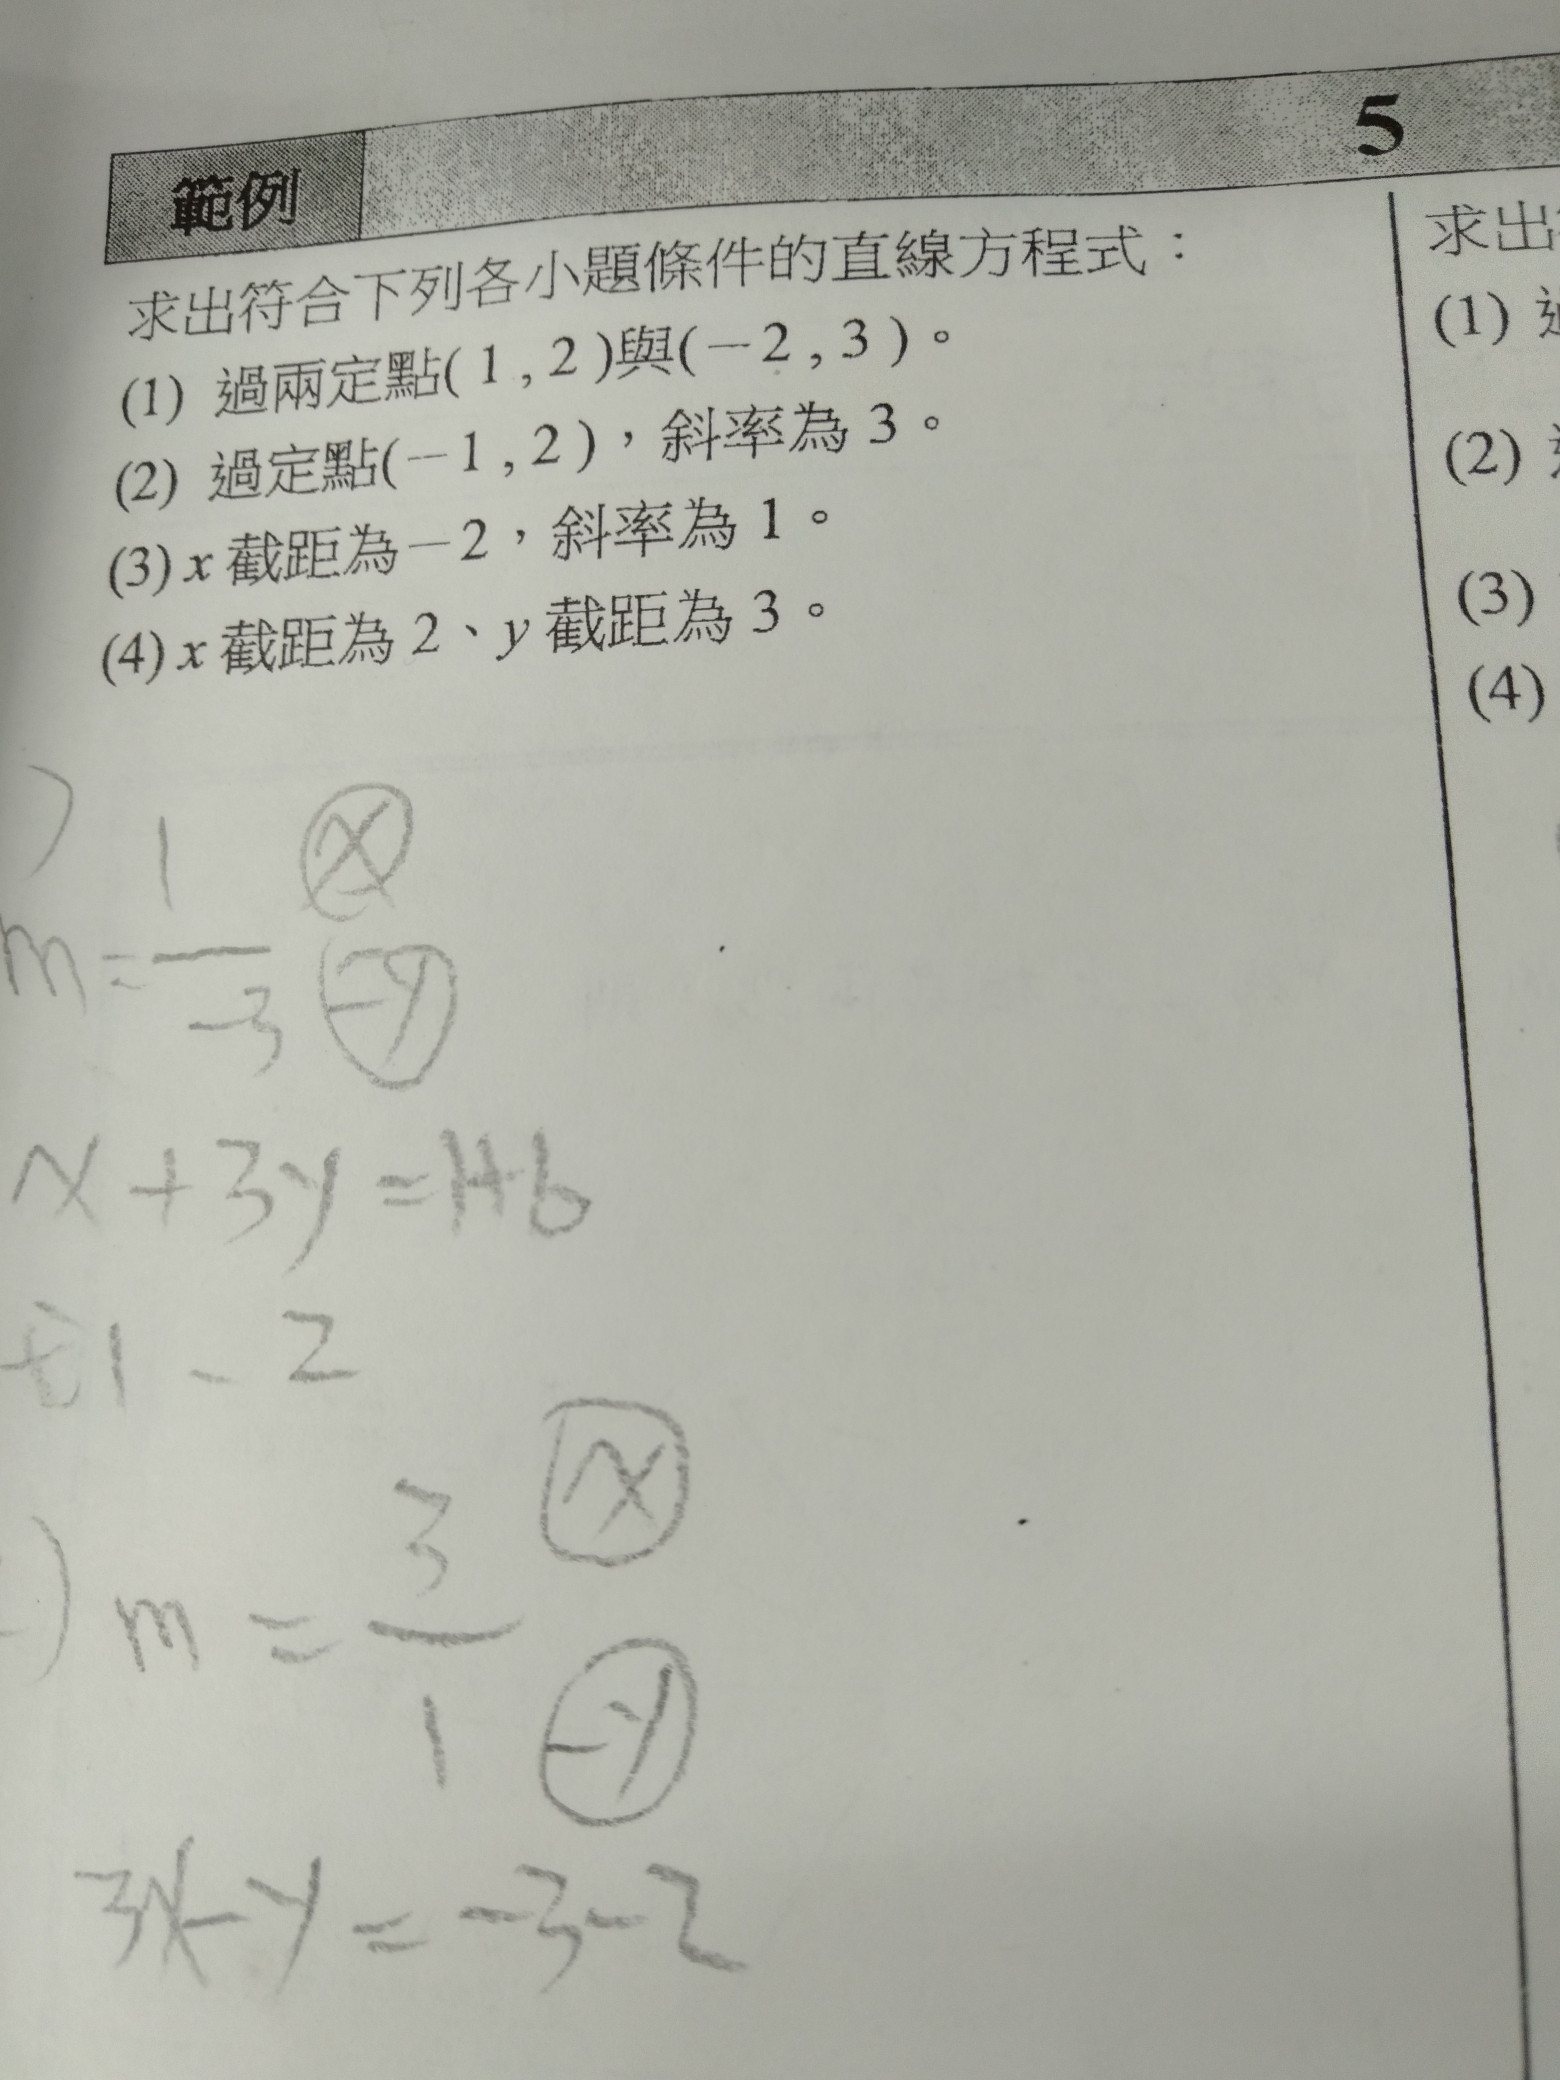 範例
5
求出符合下列各小題條件的直線方程式：
(1) 過兩定點(1,2)與(－2,3)。
(2) 過定點(－1,2)，斜率為3。
(3) x截距為－2，斜率為1。
(4) x截距為2、y截距為3。
求出
(1)
(2)
(3)
(4)
)
m = 1/-3 x -y
x+3y=1+6
代1、2
) m = 3/1 x -y
3x-y=-3-2